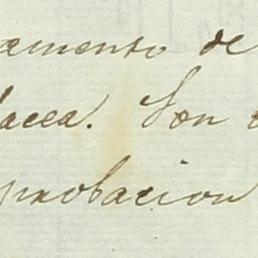 amento de
lacea. Son
probacion